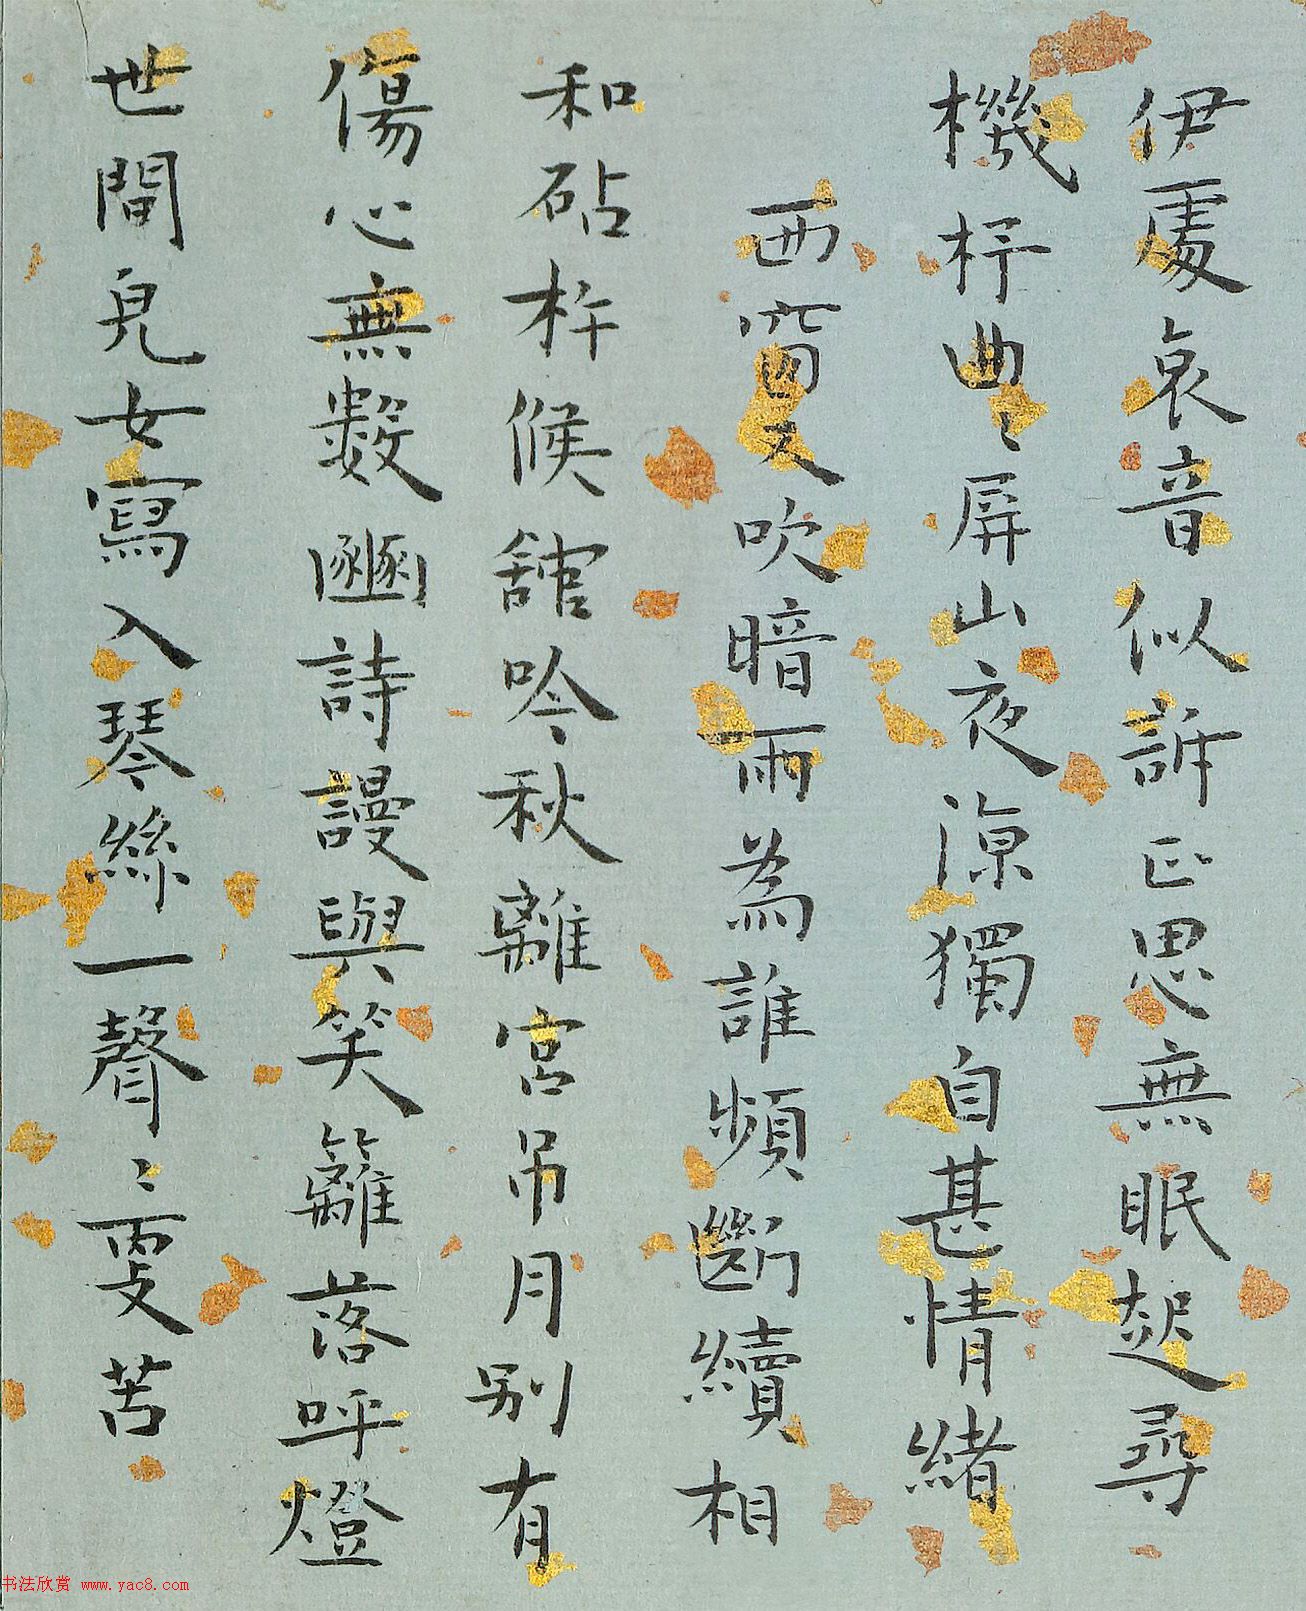 伊處哀音似訴正思無眠起尋
機杼曲〻屏山夜涼獨自甚情緒
西窗又吹暗雨為誰頻斷續相
和砧杵候館吟秋離宮吊月別有
傷心無數豳詩謾與笑籬落呼燈
世間兒女寫入琴絲一聲〻更苦
书法欣赏 www.yac8.com